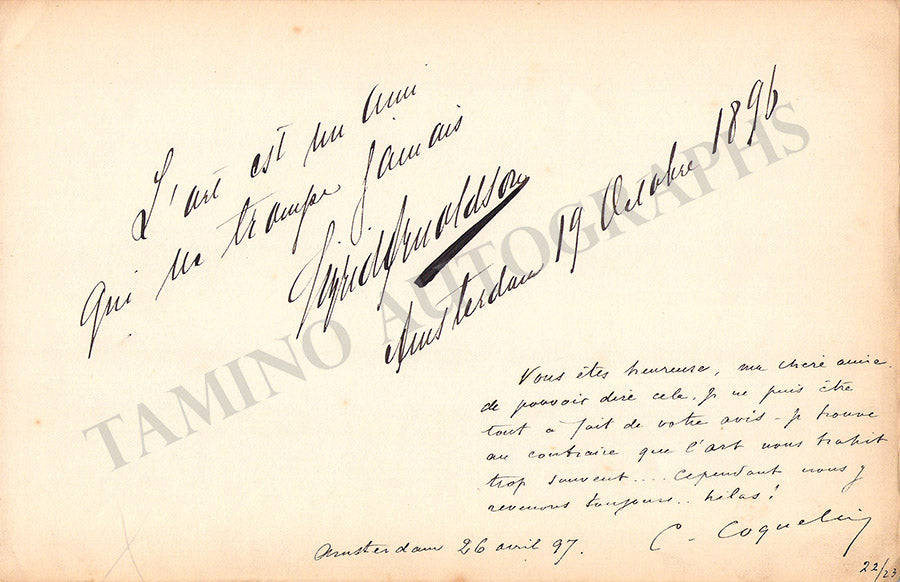 L'art est un ami
qui ne trompe jamais
Sigrid Arnoldson
Amsterdam 19 Octobre 1896
Vous êtes heureuse, ma chère amie,
de pouvoir dire cela. Je ne puis être
tout à fait de votre avis - je trouve
au contraire que l'art nous trahit
trop souvent.... cependant nous y
revenons toujours.. hélas!
C. Coquelin
Amsterdam 26 avril 97.
22/23
TAMINO AUTOGRAPHS